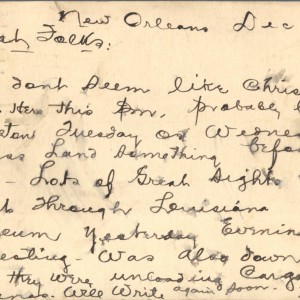 New Orleans Dec
Folks:
dont seem like Chris
Here This Pm, Probably
Tuesday or Wednes
Land Something before
- Lots of Great Sights
Through Louisiana
eum Yesterday Evenin
esting - Was Also down
they were unloading Cargo
Well Write again soon.